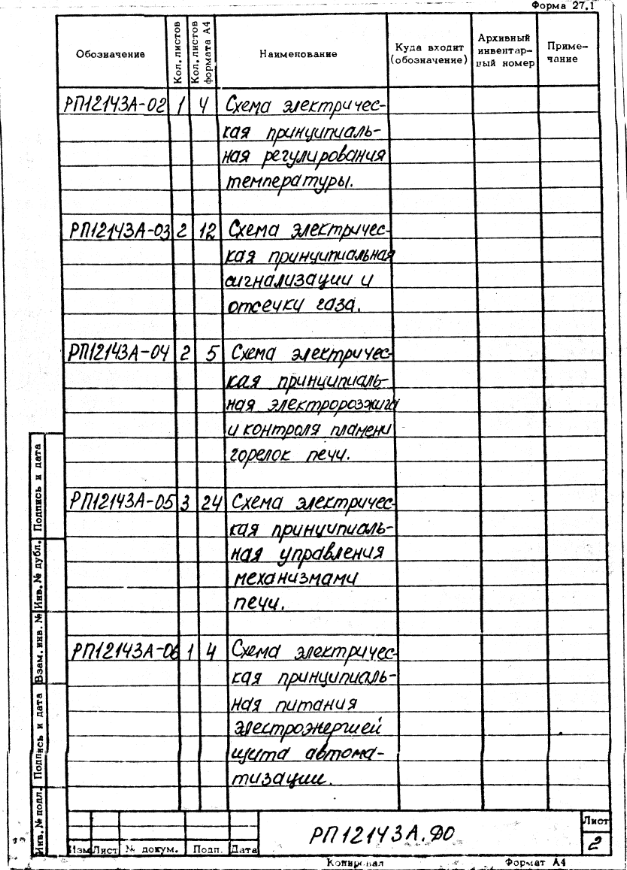 Форма 27.1
Обозначение
Кол. листов
Кол. листов формата А4
Наименование
Куда входит (обозначение)
Архивный инвентар-ный номер
Приме-чание
РП12143А-02 1 4 Схема электричес-
кая принципиаль-
ная регулирования
температуры.
РП12143А-03 2 12 Схема электричес-
кая принципиальная
сигнализации и
отсечки газа.
РП12143А-04 2 5 Схема электричес-
кая принципиаль-
ная электророзжига
и контроля пламени
горелок печи.
РП12143А-05 3 24 Схема электричес-
кая принципиаль-
ная управления
механизмами
печи.
РП12143А-06 1 4 Схема электричес-
кая принципиаль-
ная питания
электроэнергией
щита автома-
тизации.
Инв. № подл. Подпись и дата Взам. инв. № Инв. № дубл. Подпись и дата
РП12143А.ФО
Лист
2
Изм Лист № докум. Подп. Дата
Копировал
Формат А4